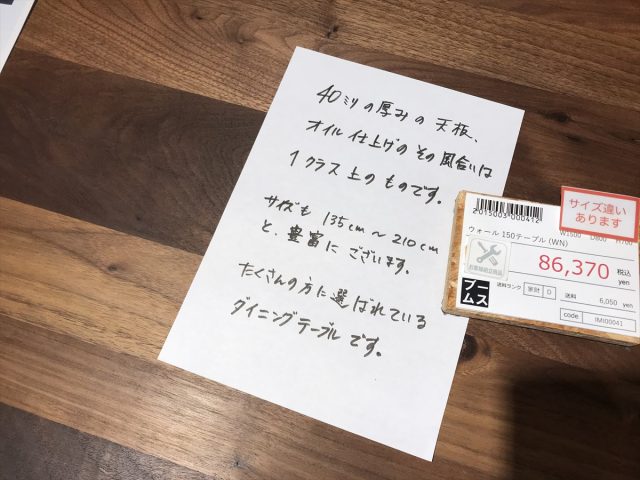 40ミリの厚みの天板、
オイル仕上げのその風合いは
1クラス上のものです。
サイズも 135cm～210cm
と、豊富にございます。
たくさんの方に選ばれている
ダイニングテーブルです。
サイズ違い
あります
2015003000412
W1500 D800
ウォール 150テーブル (WN)
86,370 税込
yen
お客様組立商品
ブームス
送料ランク 家財 D 送料 6,050 yen
code IMI00041